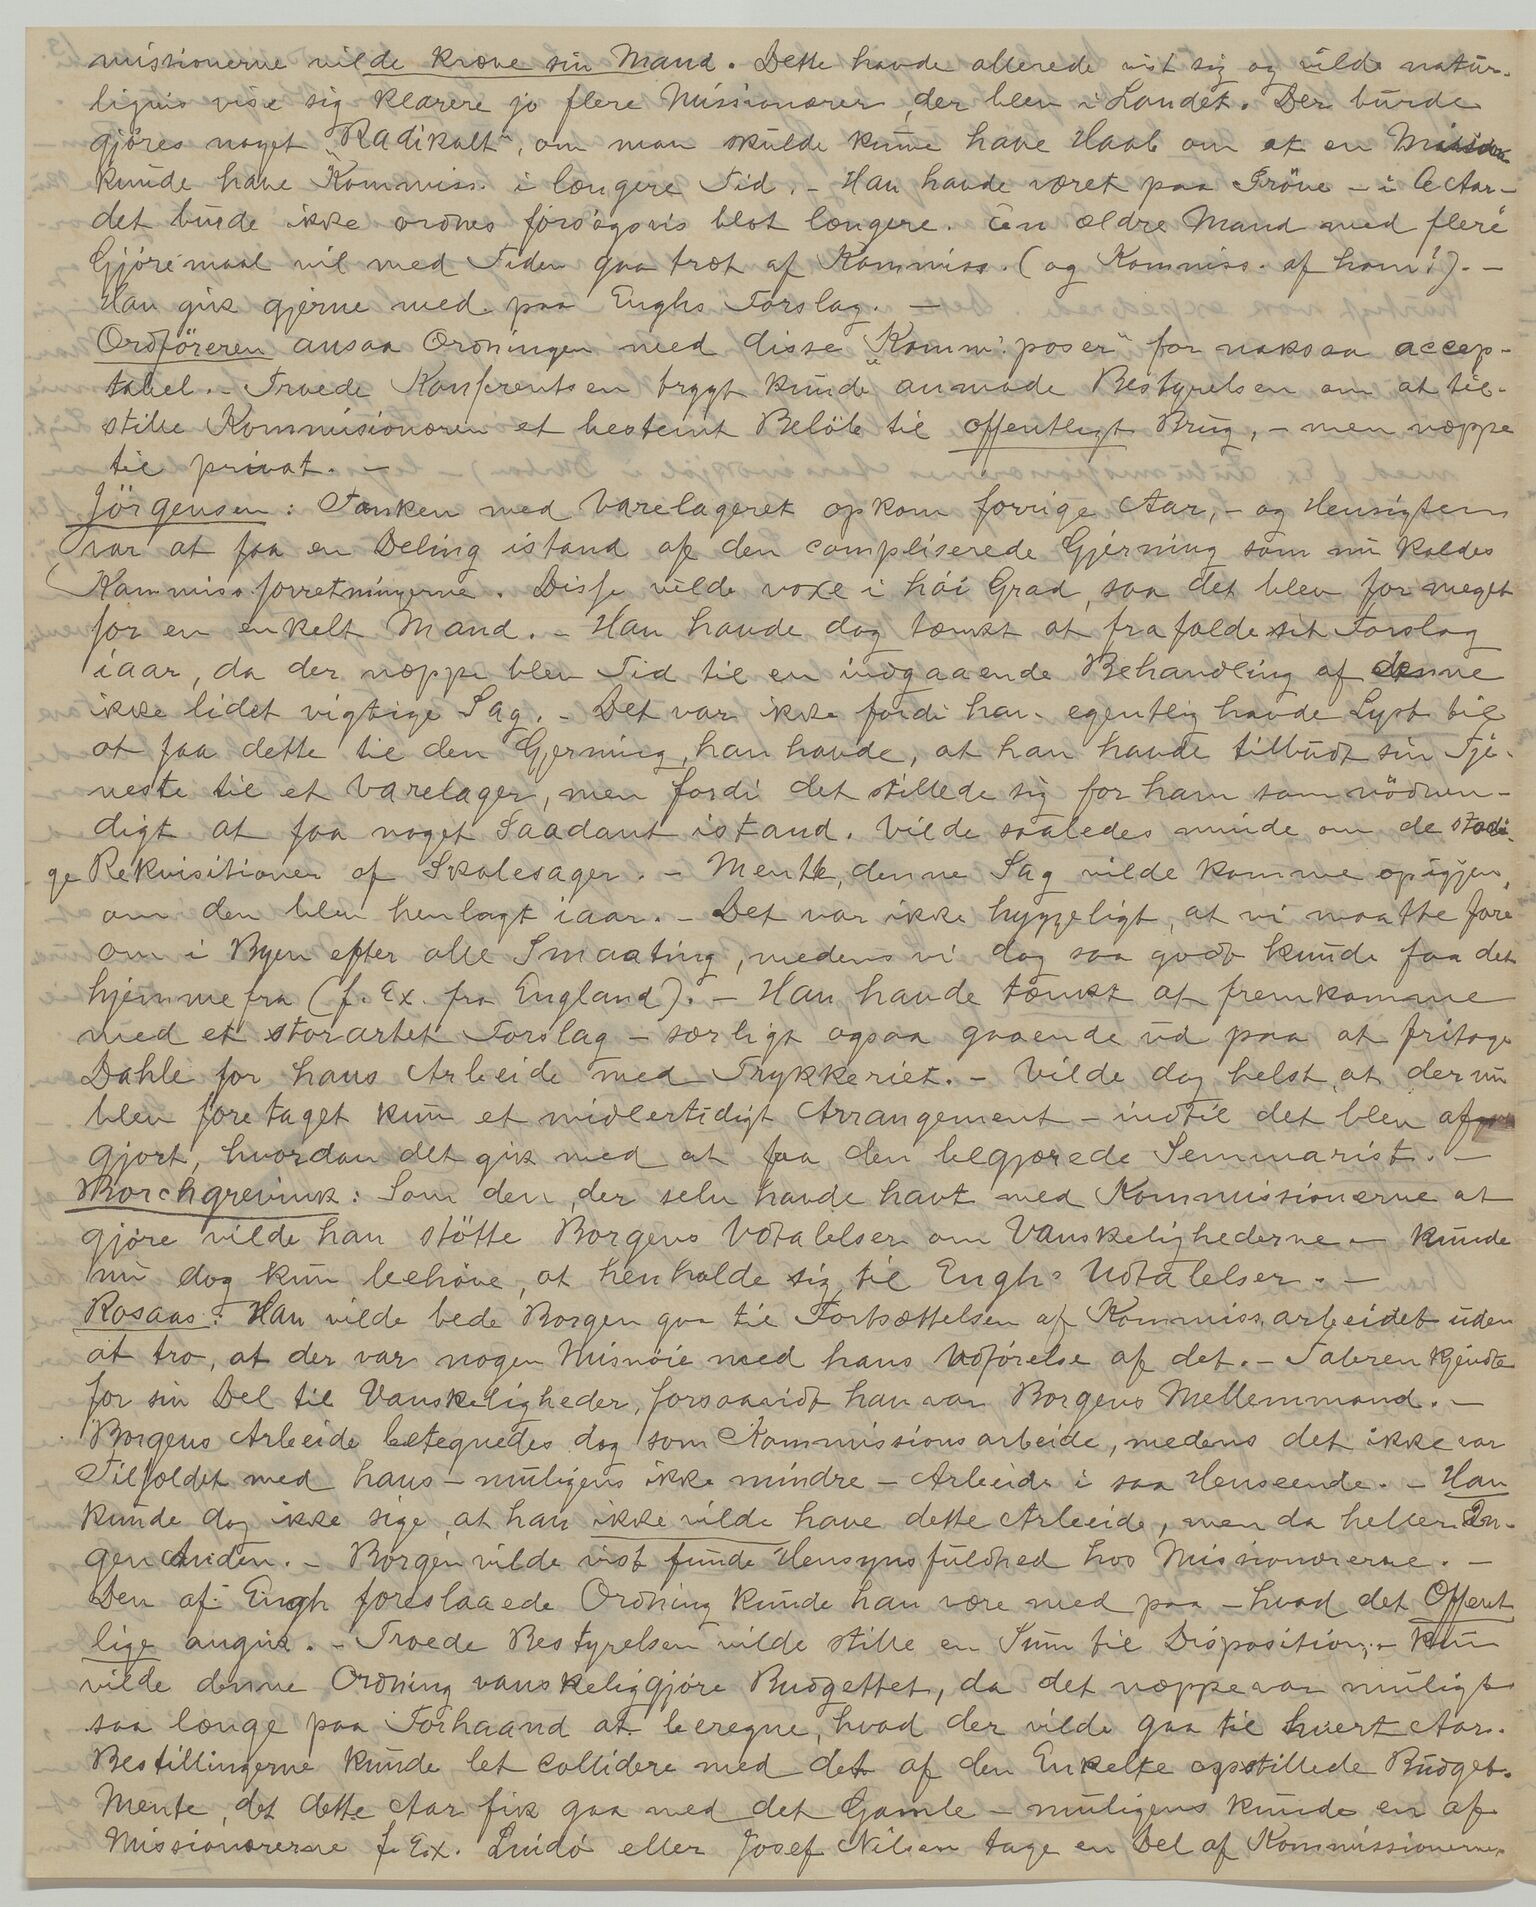 missionerne vilde kræve sin Mand. Dette havde allerede vist sig og vilde natur-
ligvis vise sig klarere jo flere Missionærer, der blev i Landet. Der burde
gjöres noget "Radikalt", om man skulde kune have Haab om at en Missionær
kunde have Kommiss. i længere Tid. - Han havde været paa Pröve - i 6 Aar -
det burde ikke ordnes forsögsvis blot længere. En ældre Mand med flere
Gjöremaal vil med Tiden gaa træt af Kommiss. (og Kommiss. af ham!). -
Han gik gjerne med paa Enghs Forslag. -
Ordföreren ansaa Ordningen med disse "Komm' poser" for noksaa accep-
tabel. - Troede Konferentsen trygt kunde anmode Bestyrelsen om at til-
stille Kommissionæren et bestemt Belöb til offentligt Brug, - men næppe
til privat. -
Jörgensen: Tanken med Varelageret opkom forrige Aar, - og Hensigten
var at faa en Deling istand af den compliserede Gjerning som nu kaldes
Kommissforretningerne. Disse vilde voxe i höi Grad, saa det blev for meget
for en enkelt Mand. - Han havde dog tænkt at frafalde sit Forslag
iaar, da der næppe blev Tid til en indgaaende Behandling af denne
ikke lidet vigtige Sag. - Det var ikke fordi han egentlig havde Lyst til
at faa dette til den Gjerning, han havde, at han havde tilbudt sin Tje-
neste til et Varelager, men fordi det stillede sig for ham som nödven-
digt at faa noget Saadant istand. Vilde saaledes minde om de stadi-
ge Rekvisitioner af Skolesager. - Mente, denne Sag vilde komme opigjen,
om den blev henlagt iaar. - Det var ikke hyggeligt, at vi maatte fare
om i Byen efter alle Smaating, medens vi dog saa godt kunde faa det
hjemmefra (f. Ex. fra England). - Han havde tænkt at fremkomme
med et storartet Forslag - særligt ogsaa gaaende ud paa at fritage
Dahle for hans Arbeide med Trykkeriet. - Vilde dog helst, at der nu
blev foretaget kun et midlertidigt Arrangement - indtil det blev af-
gjort, hvordan det gik med at faa den begjærede Seminarist. -
Borchgrevink: Som den, der selv havde havt med Kommissionerne at
gjöre vilde han stötte Borgens Udtalelser om Vanskelighederne - kunde
nu dog kun behöve, at henholde sig til Enghs Udtalelser. -
Rosaas: Han vilde bede Borgen gaa til Fortsættelsen af Kommiss.arbeidet uden
at tro, at der var nogen Misnöie med hans Udförelse af det. - Taleren kjendte
for sin Del til Vanskeligheder, forsaavidt han var Borgens Mellemmand. -
Borgens Arbeide betegnedes dog som Kommissionsarbeide, medens det ikke var
Tilfældet med hans - muligens ikke mindre - Arbeide i saa Henseende. - Han
kunde dog ikke sige, at han ikke vilde have dette Arbeide, men da heller In-
gen Anden. - Borgen vilde vist finde Hensynsfuldhed hos Missionærerne. -
Den af Engh foreslaaede Ordning kunde han være med paa - hvad det Offent
lige angik. - Troede Bestyrelsen vilde stille en Sum til Disposition, - kun
vilde denne Ordning vanskeliggjöre Budgettet, da det næppe var muligt
saa længe paa Forhaand at beregne, hvad der vilde gaa til hvert Aar.
Bestillingerne kunde let collidere med det af den Enkelte opstillede Budget.
Mente, det dette Aar fik gaa med det Gamle - muligens kunde en af
Missionærerne f. Ex. Lindö eller Josef Nilsen tage en Del af Kommissionerne.